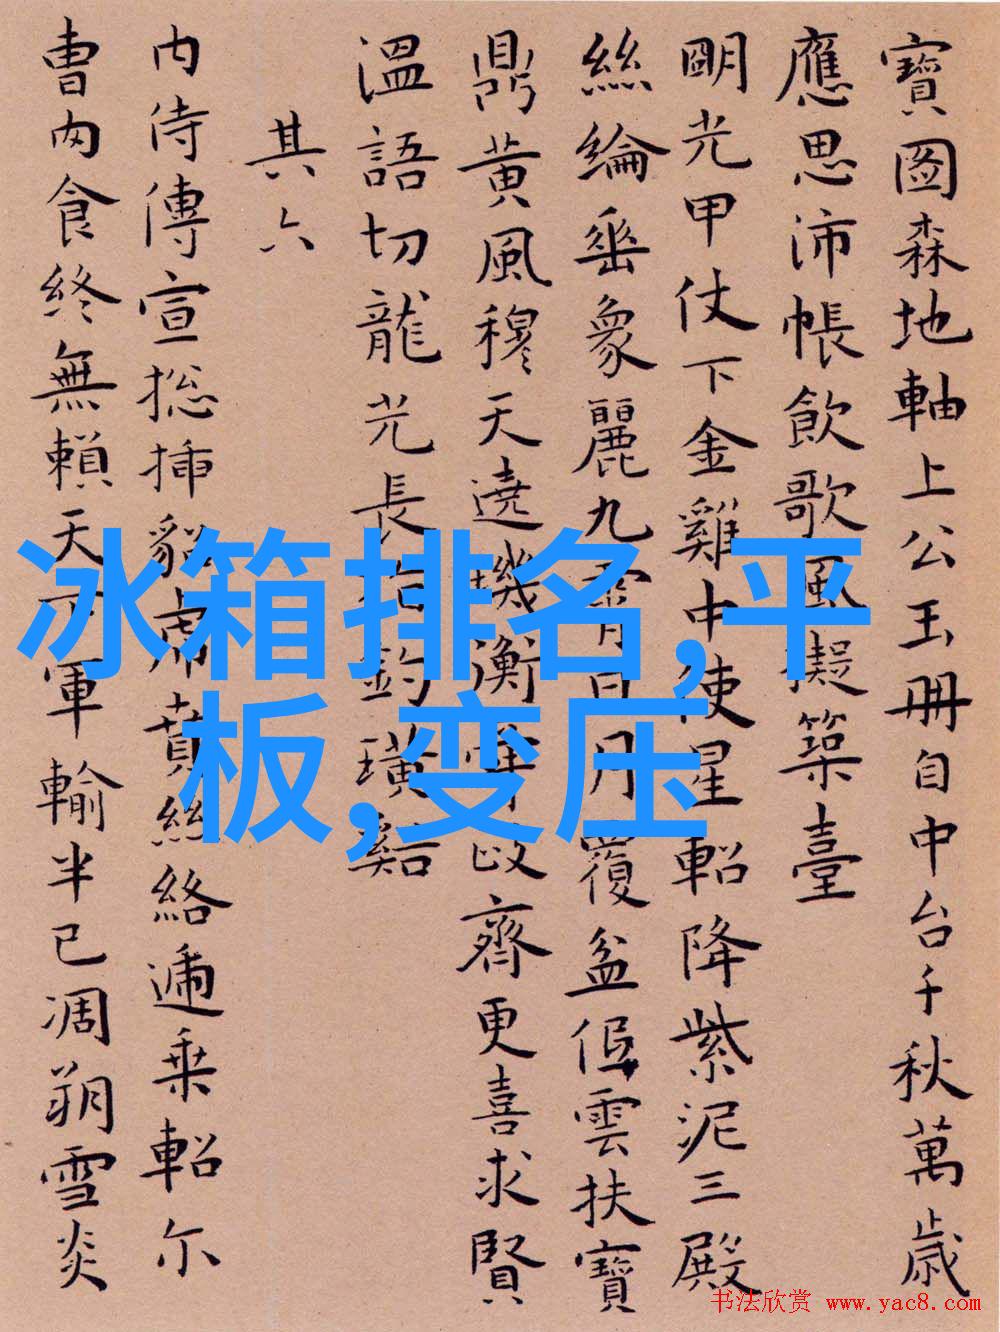 寶圖森地軸上公玉冊自中台千秋萬歲
應思沛帳飲歌風擬築臺
明光甲仗下金雞中使星軺降紫泥三殿
絲綸垂象麗九霄日月覆盆伸雲扶寶
鼎黃風穆天遶機衡政齊更喜求賢
溫語切龍光長釣璜谿
其六
內侍傳宣捴插貂席賁絲絡遞乘軺尒
曹肉食終無賴天下軍輸半已凋朔雪炎
冰箱排名,平
板,变压
书法欣赏 www.yac8.com